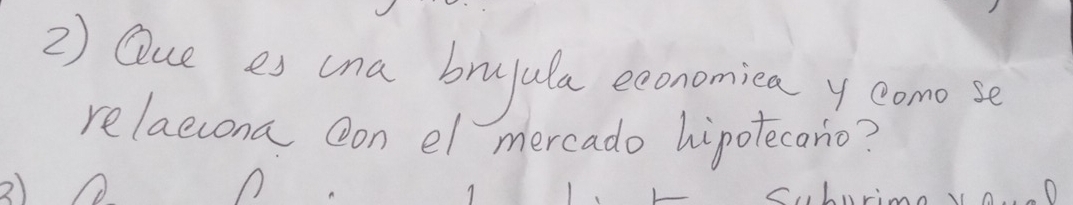 2) Que es una brujula economica y como se
relaciona con el mercado hipotecario?
3)
Subprime y